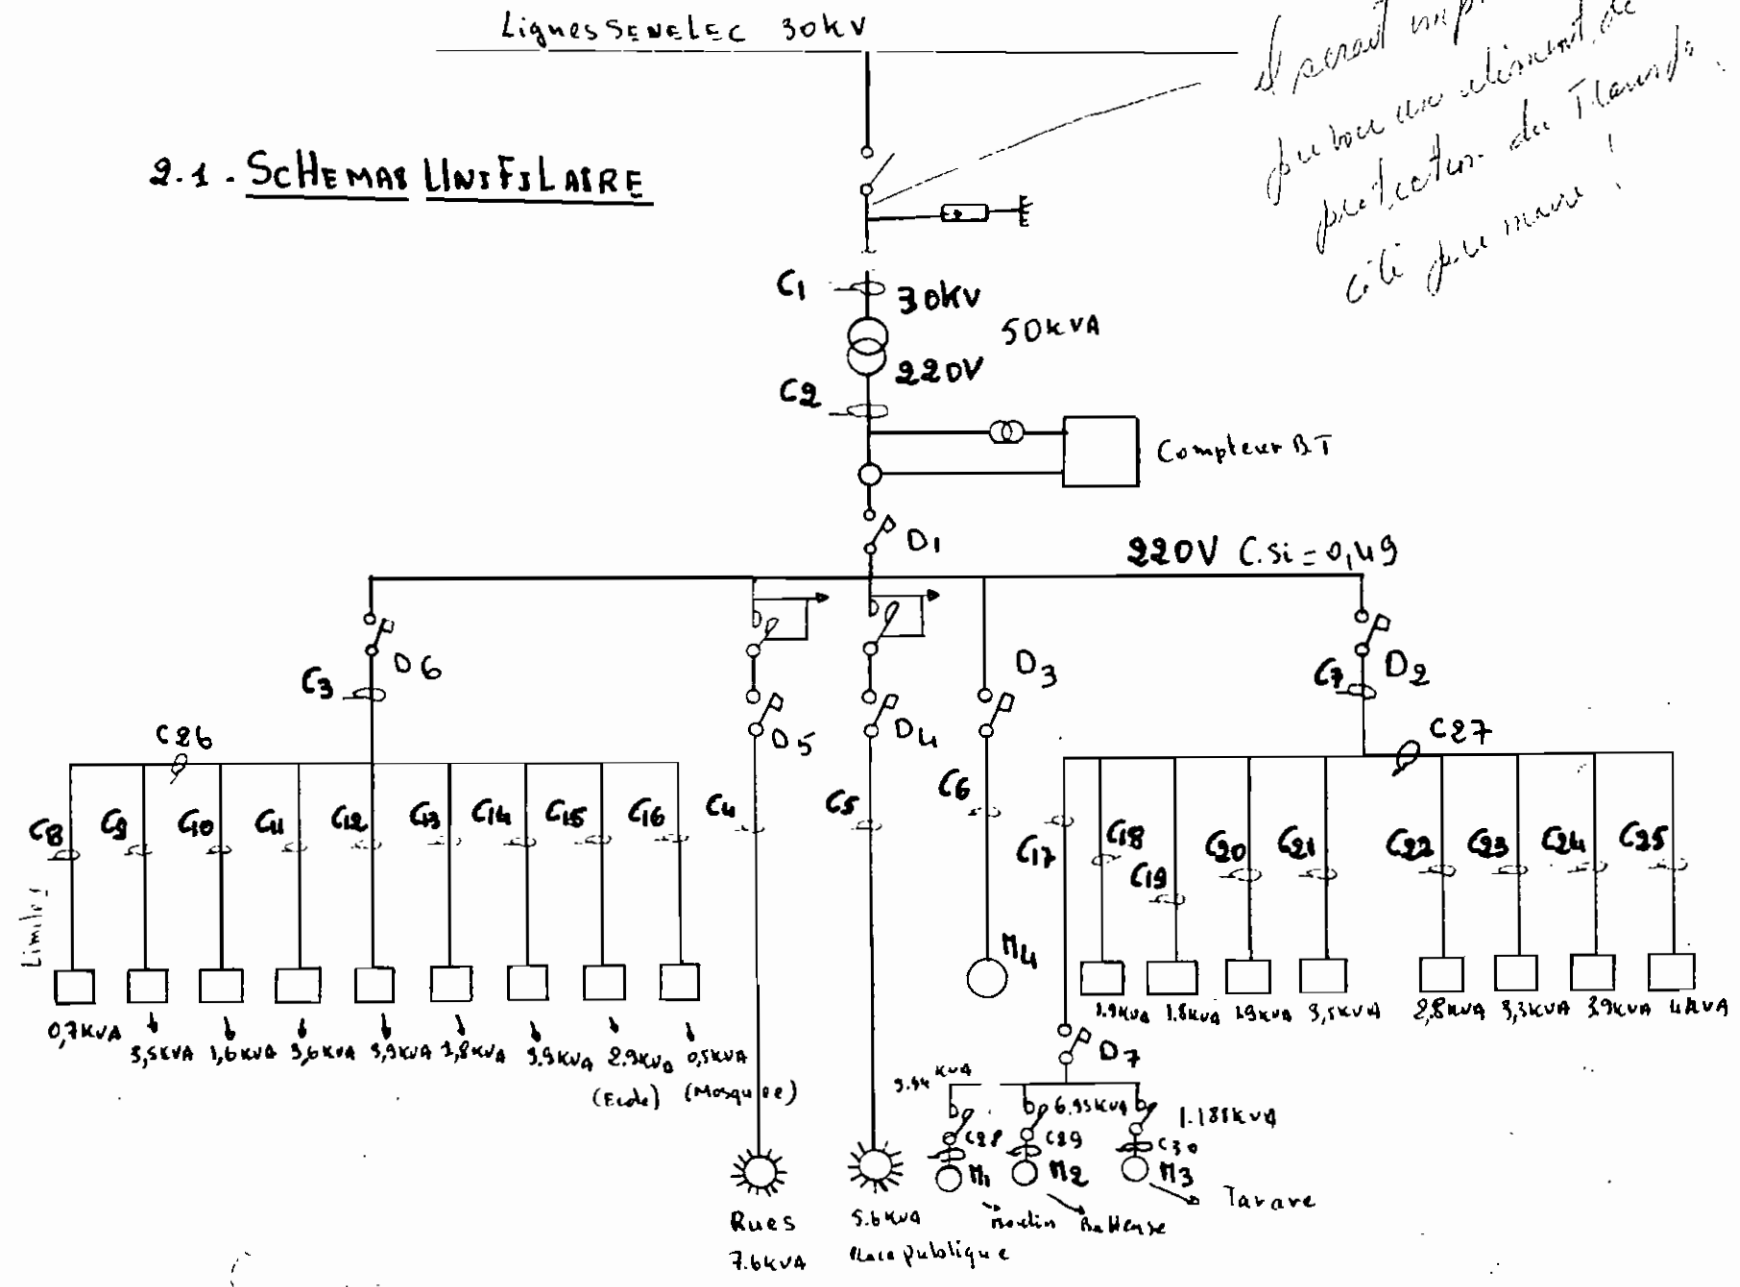 Lignes SENELEC 30KV
Il serait
un element de
protection du Transfo
côté primaire !
2.1. SCHEMAS UNIFILAIRE
C1
30KV
50KVA
220V
C2
Compteur BT
D1
220V C.si = 0,49
D6
C3
D5
D4
D3
C7
D2
C26
C27
C8
C9
C10
C11
C12
C13
C14
C15
C16
C4
C5
C6
C17
C18
C19
C20
C21
C22
C23
C24
C25
Limites
M4
0,7KVA
3,5KVA
1,6KVA
3,6KVA
3,9KVA
1,8KVA
3.9KVA
2.9KVA
0,5KVA
(Ecole)
(Mosquee)
1.9KVA
1.8KVA
1.9KVA
3,5KVA
2,8KVA
3,3KVA
3.9KVA
D7
3.94 KVA
6.95KVA
1.188KVA
C28
C29
C30
M1
M2
M3
Moulin
Batteuse
Tarare
Rues
7.6KVA
5.6KVA
Place publique